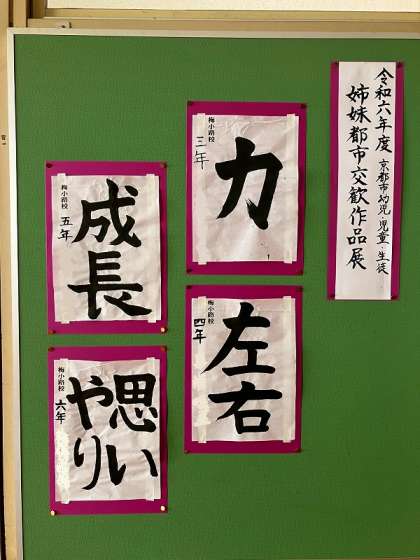 令和六年度 京都市幼児・児童・生徒
姉妹都市交歓作品展
力
梅小路校
三年
左右
梅小路校
四年
成長
梅小路校
五年
思い
やり
梅小路校
六年